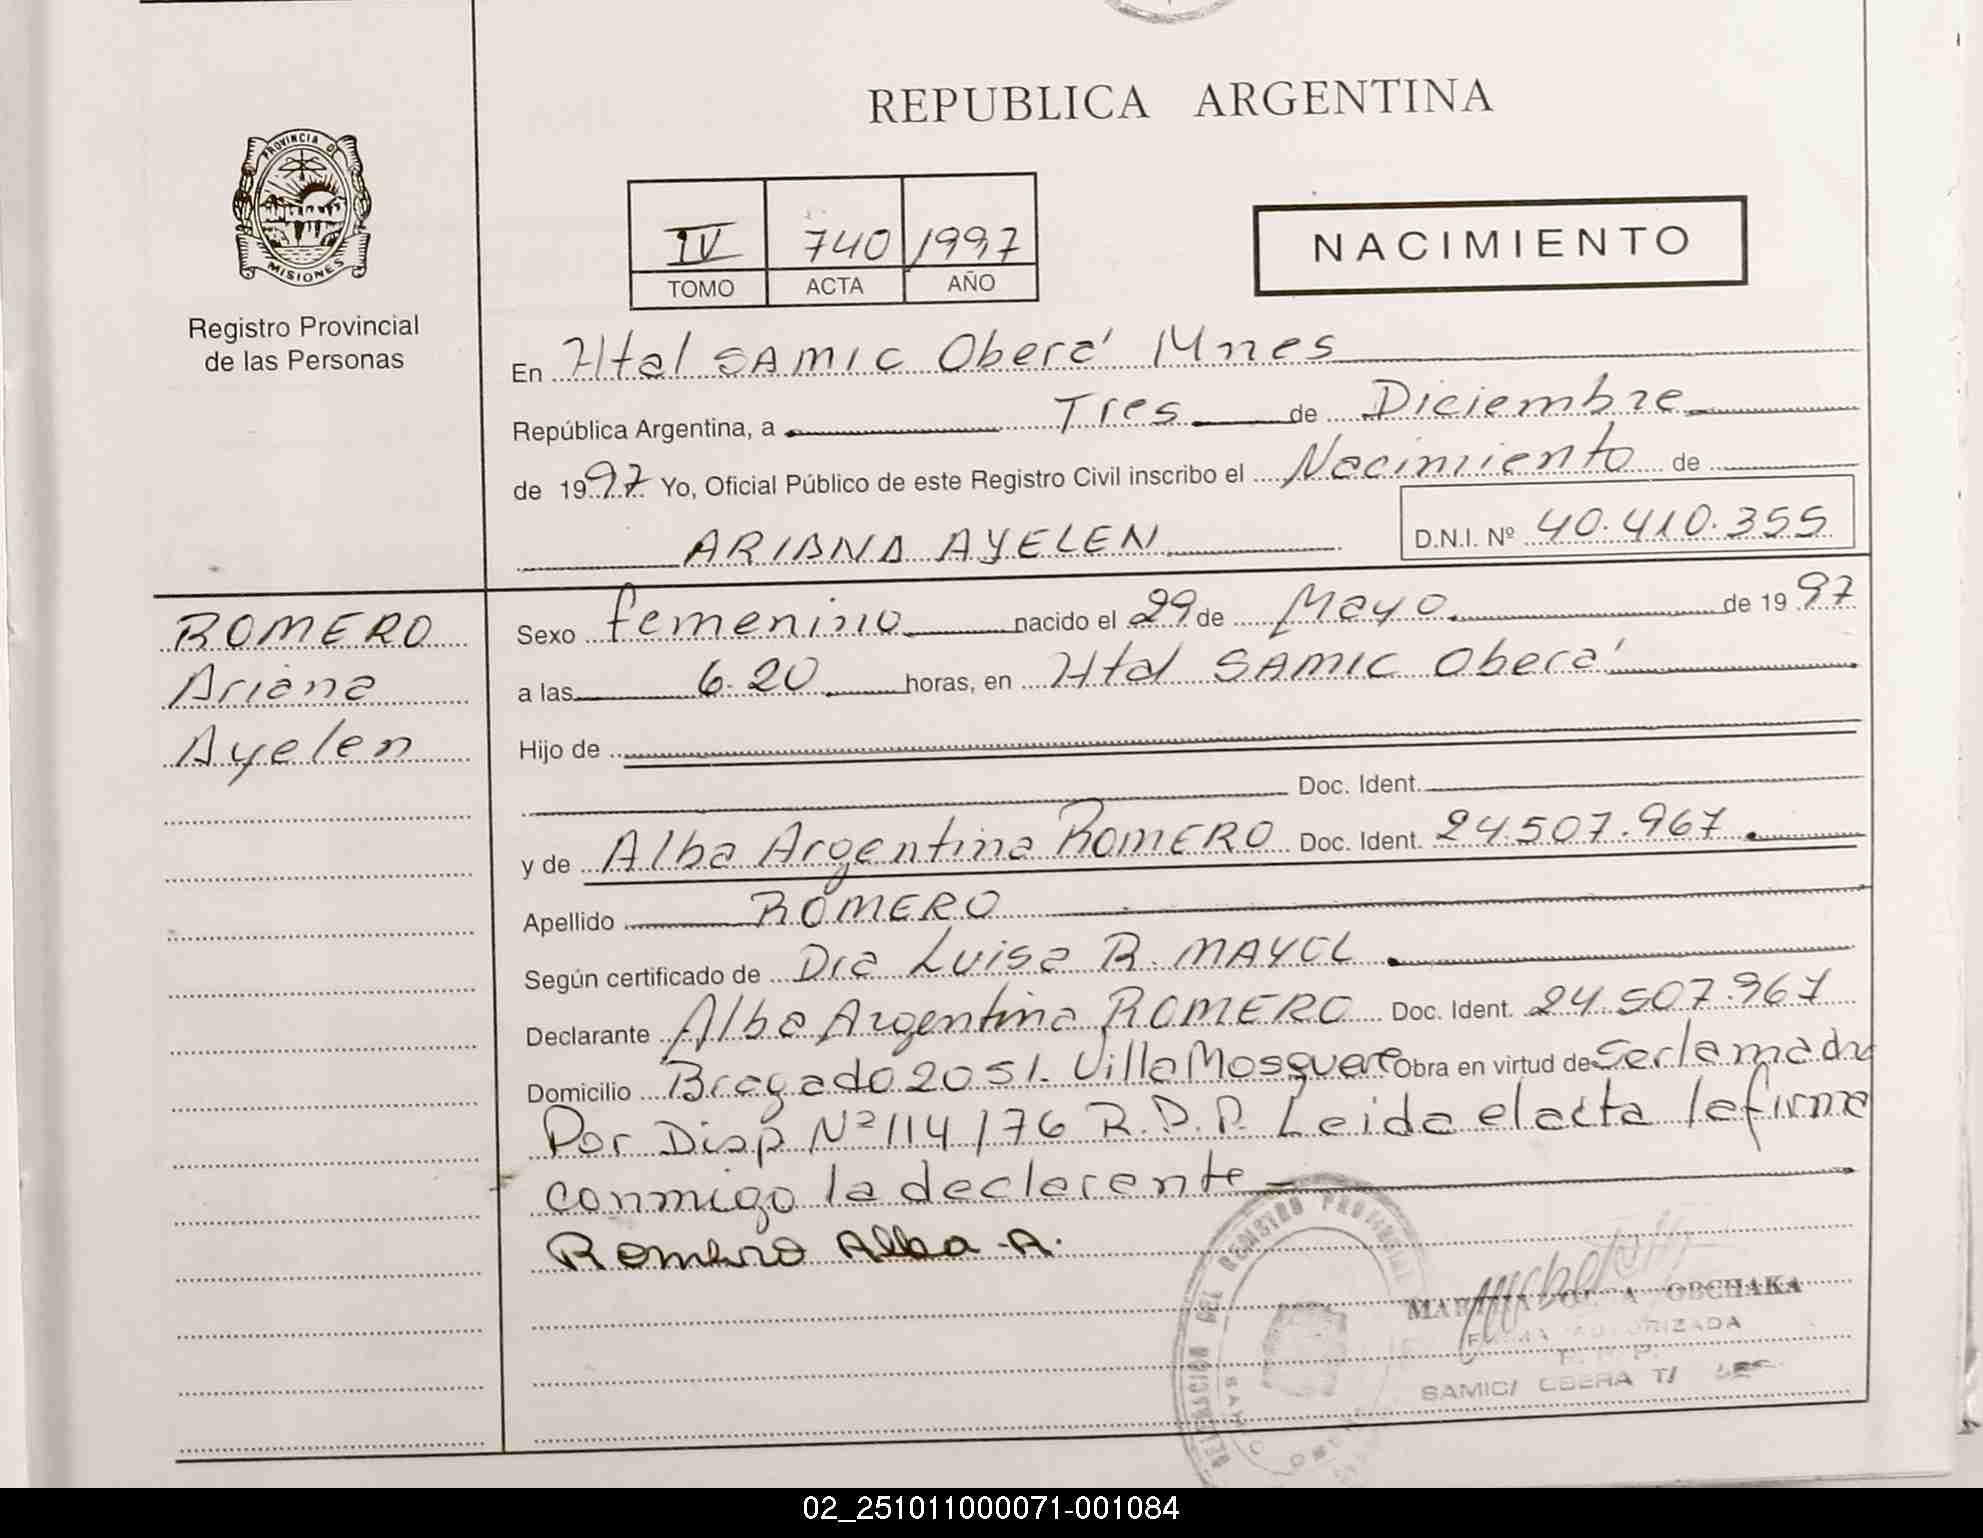 REPUBLICA ARGENTINA
PROVINCIA D
MISIONES
Registro Provincial
de las Personas
IV 740 1997
TOMO ACTA AÑO
NACIMIENTO
En Htal SAMIC Oberá Mnes
República Argentina, a Tres de Diciembre
de 1997 Yo, Oficial Público de este Registro Civil inscribo el Nacimiento de
ARIANA AYELEN D.N.I. Nº 40.410.355
ROMERO
Ariana
Ayelen
Sexo femenino nacido el 29 de Mayo de 1997
a las 6.20 horas, en Htal SAMIC Oberá
Hijo de
Doc. Ident.
y de Alba Argentina ROMERO Doc. Ident. 24.507.967
Apellido ROMERO
Según certificado de Dra Luisa R. MAYOL
Declarante Alba Argentina ROMERO Doc. Ident. 24.507.967
Domicilio Bragado 2051. Villa Mosquera Obra en virtud de ser la madre
Por Disp Nº 114/76 R.P.P. Leida el acta la firma
conmigo la declarante
Romero Alba A.
DEL REGISTRO PROVINCIAL
OBCHAKA
FIRMA AUTORIZADA
SAMIC/ OBERA T/
02_251011000071-001084